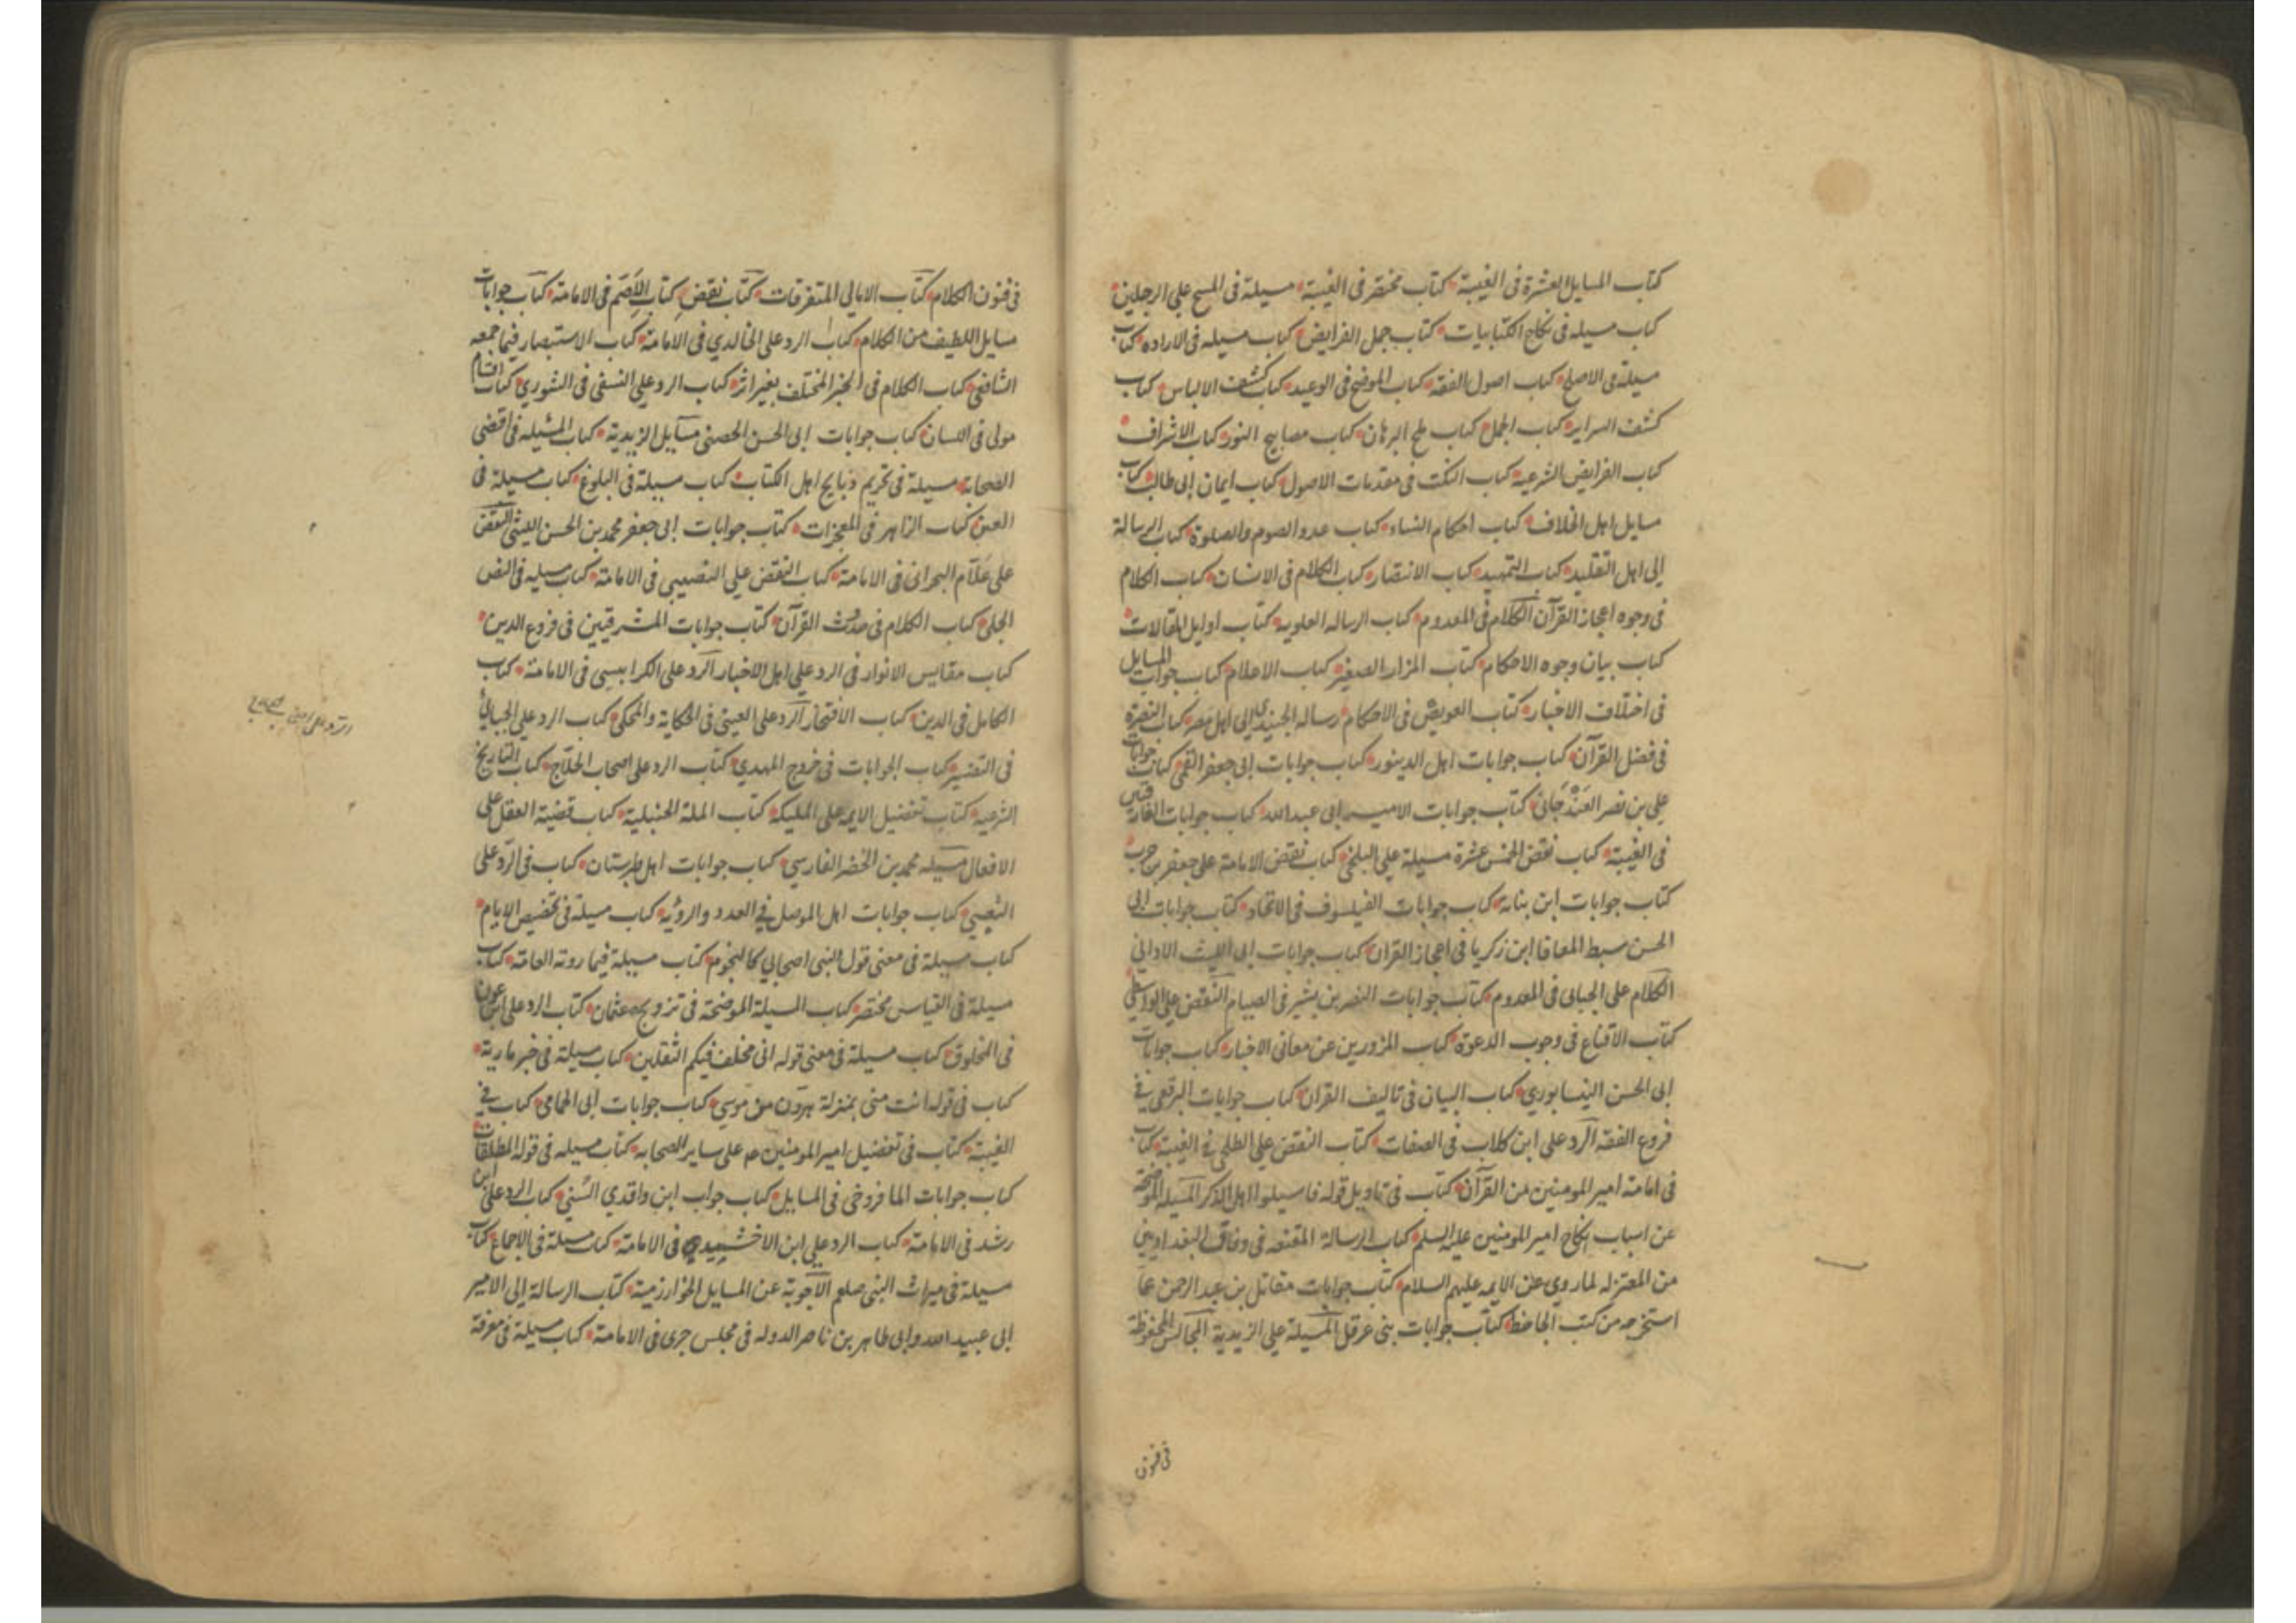 كتاب المسايل العشرة فى الغيبة كتاب مختصر فى الغيبة مسيلة فى المسح على الرجلين
كتاب مسيله فى نكاح الكتابيات كتاب جمل الفرايض كتاب مسيله فى الاراده كتاب
مسيلة فى الاصلح كتاب اصول الفقه كتاب الموضح فى الوعيد كتاب كشف الالباس كتاب
كشف السراير كتاب الجمل كتاب لمح البرهان كتاب مصابيح النور كتاب الاشراف
كتاب الفرايض الشرعية كتاب النكت فى مقدمات الاصول كتاب ايمان ابى طالب كتاب
مسايل اهل الخلاف كتاب احكام النساء كتاب عدد الصوم والصلوة كتاب الرسالة
الى اهل التقليد كتاب التمهيد كتاب الانتصار كتاب الكلام فى الانسان كتاب الكلام
فى وجوه اعجاز القرآن الكلام فى المعدوم كتاب الرساله العلويه كتاب اوايل المقالات
كتاب بيان وجوه الاحكام كتاب المزار الصغير كتاب الاعلام كتاب جواب المسايل
فى اختلاف الاخبار كتاب العويص فى الاحكام رساله الجنيدى الى اهل مصر كتاب النصرة
فى فضل القرآن كتاب جوابات اهل الدينور كتاب جوابات ابى جعفر القمى كتاب جوابات
على بن نصر العَنْدَجَانى كتاب جوابات الامير ابى عبد الله كتاب جوابات الفارقيين
فى الغيبة كتاب نقض الخمس عشرة مسيلة على البلخى كتاب نقض الامامة على جعفر بن حرب
كتاب جوابات ابن نباته كتاب جوابات الفيلسوف فى الاتحاد كتاب جوابات ابى
الحسن سبط المعافا ابن زكريا فى اعجاز القران كتاب جوابات ابى الليث الاداني
الكلام على الجبائى فى المعدوم كتاب جوابات النصر بن بشير فى الصيام النقض على الواسطي
كتاب الاقناع فى وجوب الدعوة كتاب المزورين عن معانى الاخبار كتاب جوابات
ابى الحسن النيسابوري كتاب البيان فى تاليف القران كتاب جوابات البرقعى في
فروع الفقه الرد على ابن كلاب فى الصفات كتاب النقض على الطلحى فى الغيبة كتاب
فى امامة امير المومنين من القرآن كتاب فى تاويل قوله فاسيلوا اهل الذكر المسيله الموضحة
عن اسباب نكاح امير المومنين عليه السلم كتاب الرسالة المقنعه فى وفاق البغداديين
من المعتزله لما روي عن الايمه عليهم السلام كتاب جوابات مقاتل بن عبد الرحمن عما
استخرجه من كتب الجاحظ كتاب جوابات بنى عرقل المسيلة على الزيدية المجالس المحفوظة
فى فنون
فى فنون الكلام كتاب الامالى المتفرقات كتاب نقض كتاب الاصَم فى الامامة كتاب جوابات
مسايل اللطيف من الكلام كتاب الرد على الخالدي فى الامامة كتاب الاستبصار فيما جمعه
الشافعى كتاب الكلام فى الخبر المختلف بغير اثر كتاب الرد على النسفى فى الشوري كتاب اقسام
مولى فى اللسان كتاب جوابات ابى الحسن الحصنى مسايل الزيدية كتاب المسئيله فى اقضى
الصحابة مسيلة فى تحريم ذبايح اهل الكتاب كتاب مسيلة فى البلوغ كتاب مسيلة فى
العن كتاب الزاهر فى المعجزات كتاب جوابات ابى جعفر محمد بن الحسن الليثى النقض
على غلام البحرانى فى الامامة كتاب النقض على النصيبى فى الامامة كتاب مسيله فى النص
الجلى كتاب الكلام فى حدث القرآن كتاب جوابات المشرقيين فى فروع الدين
كتاب مقايس الانوار فى الرد على اهل الاخبار الرد على الكرابيسى فى الامامة كتاب
الكامل فى الدين كتاب الافتخار الرد على العيبى فى الحكاية والمحكى كتاب الرد على الجبائي
فى التفسير كتاب الجوابات فى خروج المهدي كتاب الرد على اصحاب الحلاج كتاب التاريخ
الشرعيه كتاب تفضيل الايمه على المليكه كتاب الملة الحنبلية كتاب قضية العقل على
الافعال مسيله محمد بن الخضر الفارسي كتاب جوابات اهل طبرستان كتاب فى الرد على
الشعيبي كتاب جوابات اهل الموصل في العدد والرؤيه كتاب مسيلة فى تخصيص الايام
كتاب مسيلة فى معنى قول النبى اصحابي كالنجوم كتاب مسيلة فيما روته العامة كتاب
مسيلة فى القياس مختصر كتاب المسيلة الموضحة فى تزويج عثمان كتاب الرد على ابن عون
فى المخلوق كتاب مسيلة فى معنى قوله انى مخلف فيكم الثقلين كتاب مسيلة فى خبر ماريه
كتاب فى قوله انت منى بمنزلة هرون من موسي كتاب جوابات ابى الحمامى كتاب في
الغيبة كتاب فى تفضيل امير المومنين عه على ساير الصحابه كتاب مسيله فى قوله المطلقات
كتاب جوابات المافروخى فى المسايل كتاب جواب ابن واقدي السني كتاب الرد على ابن
رشد فى الامامة كتاب الرد على ابن الاخشيدي فى الامامة كتاب مسيلة فى الاجماع كتاب
مسيلة فى ميراث النبى صلعم الاجوبة عن المسايل الخوارزمية كتاب الرسالة الى الامير
ابى عبيد الله وابى طاهر بن ناصر الدوله فى مجلس جرى فى الامامة كتاب مسيلة فى معرفة